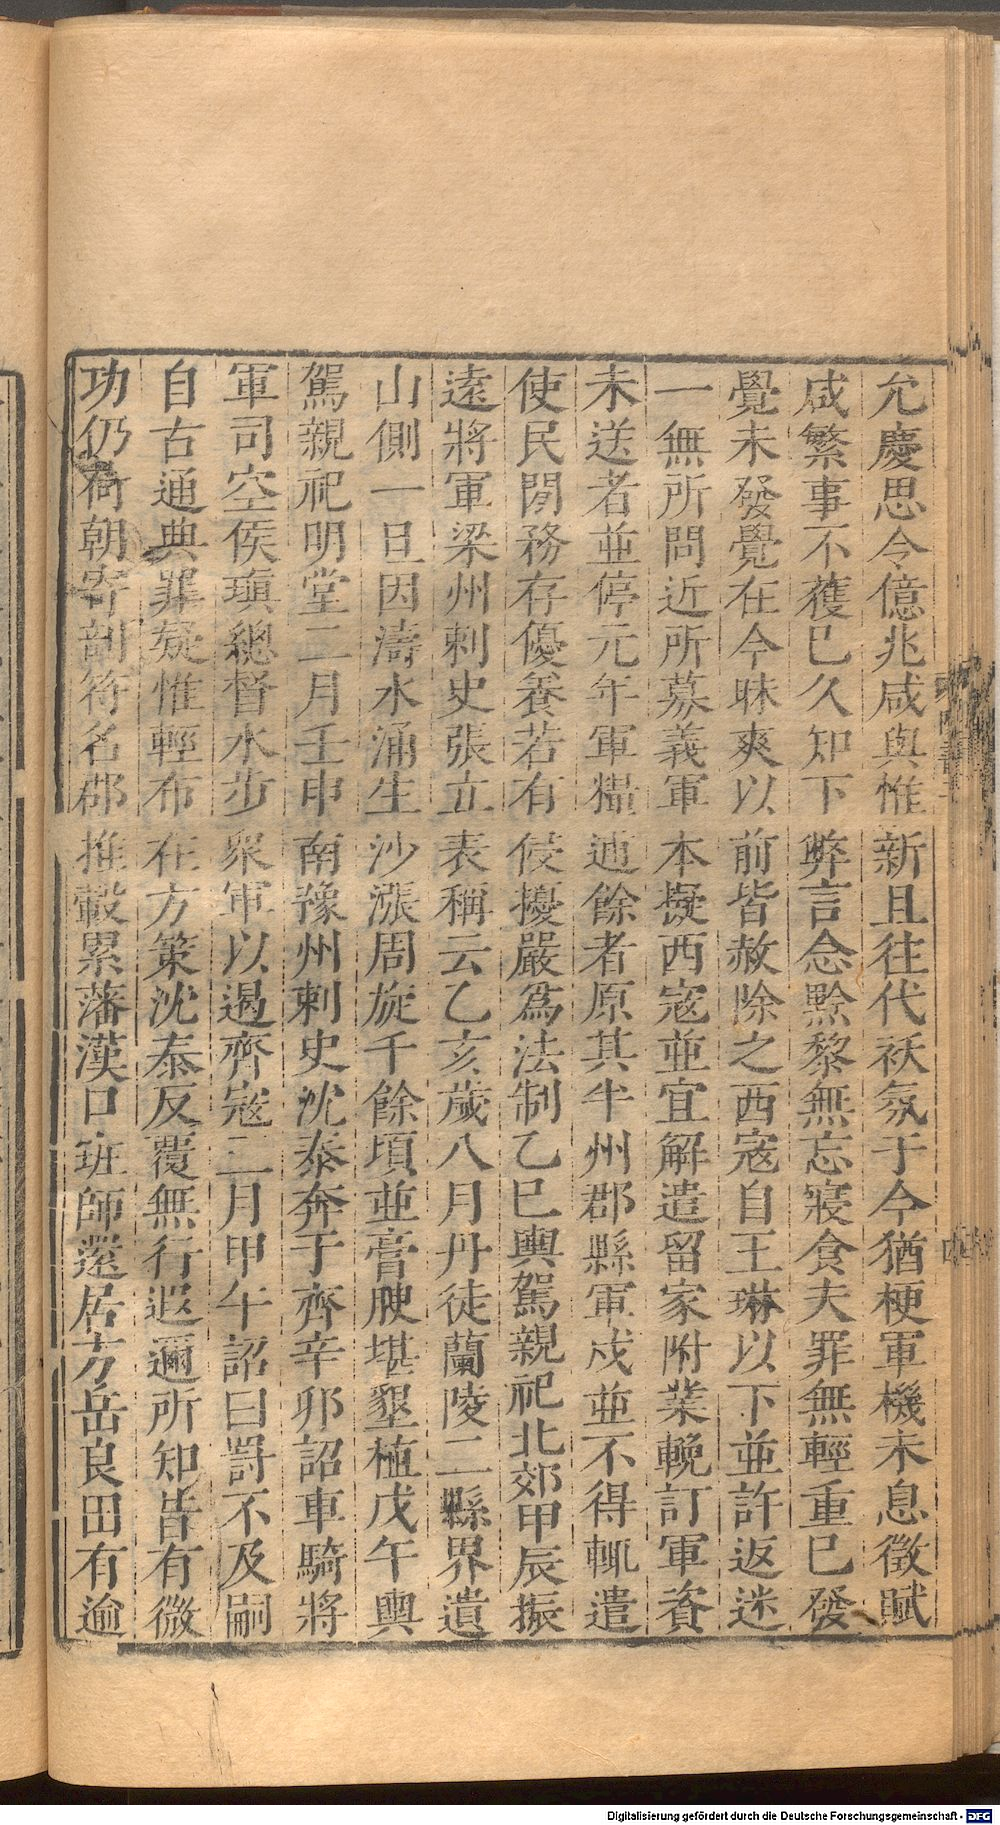 允慶思令億兆咸與惟新且往代袄氛于今猶梗軍機未息徵賦
咸繁事不獲已久知下弊言念黔黎無忘寢食夫罪無輕重已發
覺未發覺在今昧爽以前皆赦除之西寇自王琳以下並許返迷
一無所問近所募義軍本擬西寇並宜解遣留家附業輓訂軍資
未送者並停元年軍糧逋餘者原其半州郡縣軍戍並不得輒遣
使民間務存優養若有侵擾嚴爲法制乙巳輿駕親祀北郊甲辰振
遠將軍梁州刺史張立表稱云乙亥歲八月丹徒蘭陵二縣界遺
山側一旦因濤水涌生沙漲周旋千餘頃並膏腴堪墾植戊午輿
駕親祀明堂二月壬申南豫州刺史沈泰奔于齊辛卯詔車騎將
軍司空侯瑱總督水步衆軍以遏齊寇三月甲午詔曰罰不及嗣
自古通典罪疑惟輕布在方策沈泰反覆無行遐邇所知皆有微
功仍荷朝寄剖符名郡推轂累藩漢口班師還居方岳良田有逾
Digitalisierung gefördert durch die Deutsche Forschungsgemeinschaft - DFG